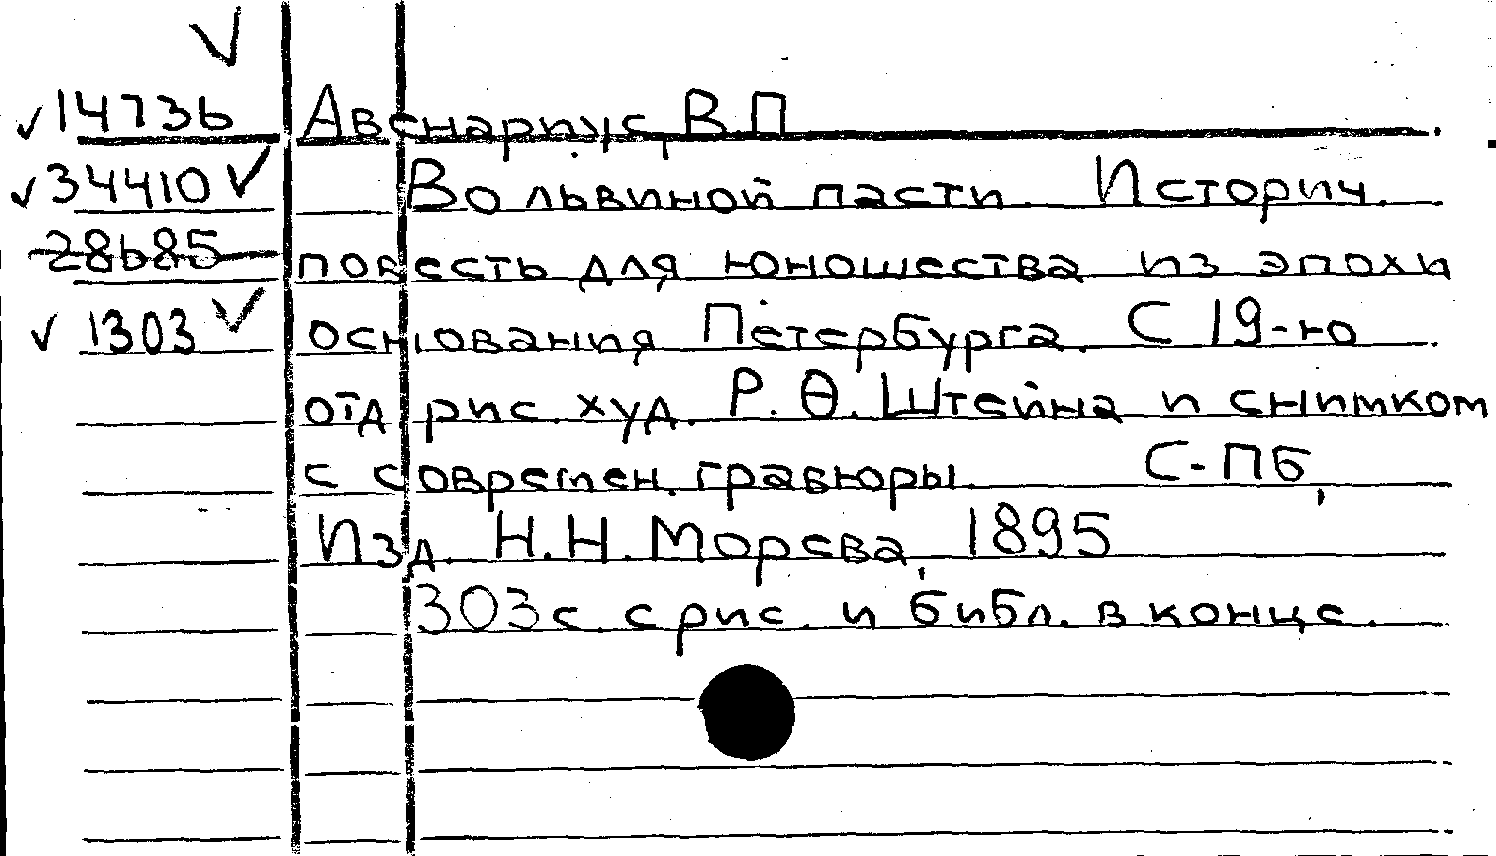 14736 Авенариус, В.П.
34410 Во львиной пасти. Историч.
28685 повесть для юношества из эпохи
1303 основания Петербурга. С 19-ю
отд. рис. худ. Р.Ѳ. Штейна и снимком
с современ. гравюры. С-Пб,
Изд. Н.Н. Морева, 1895
303 с. с рис. и библ. в конце.